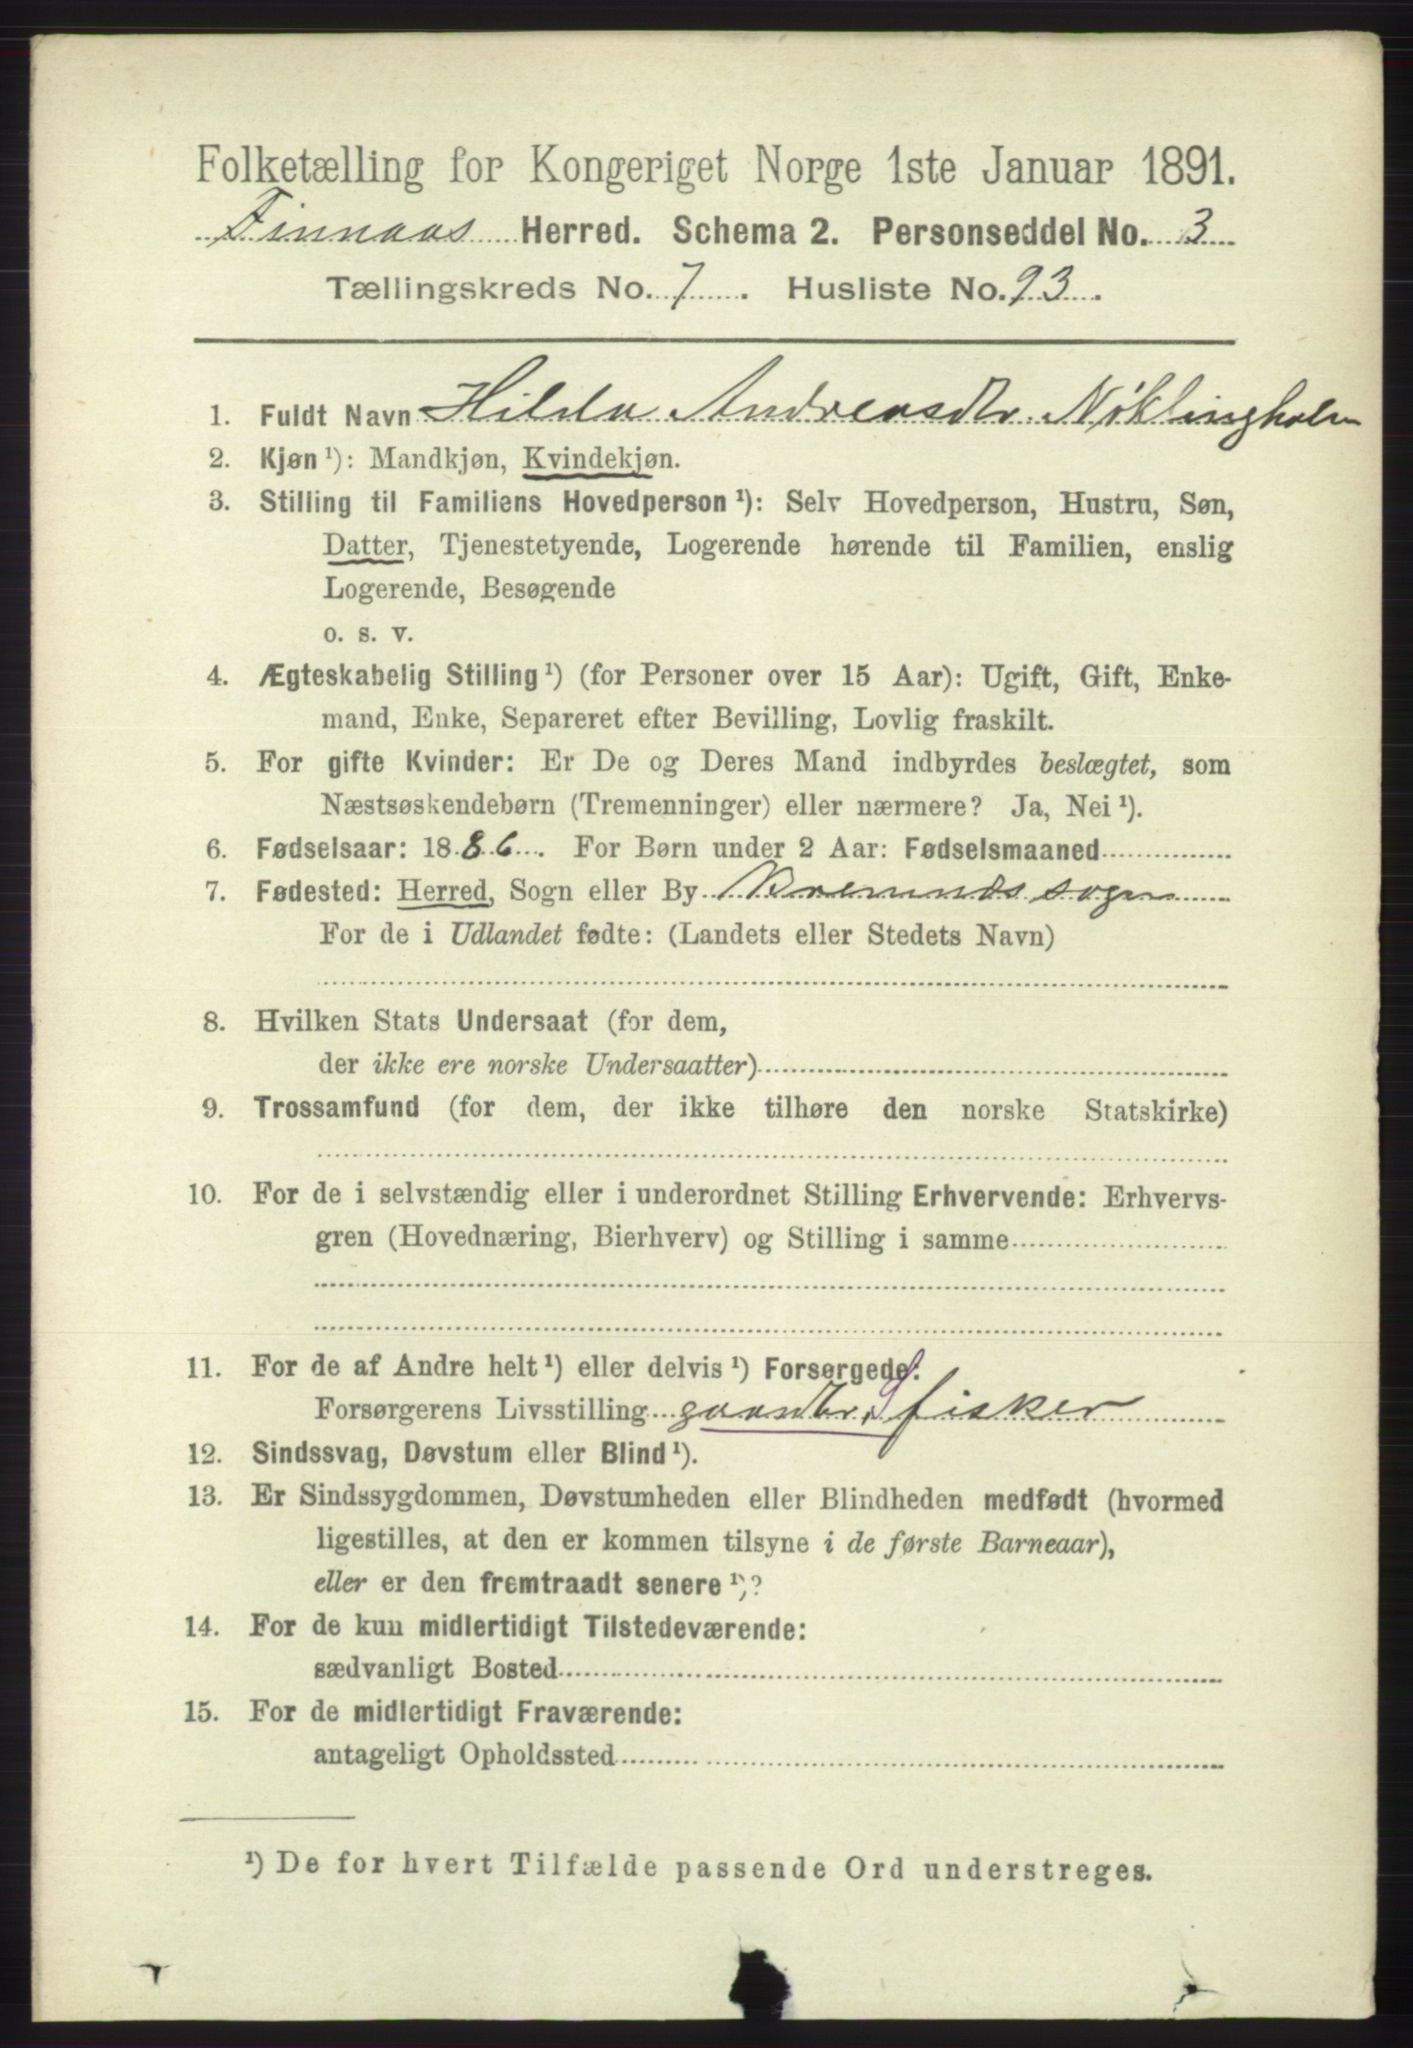 Folketælling for Kongeriget Norge 1ste Januar 1891.
Finnaas Herred. Schema 2. Personseddel No. 3
Tællingskreds No. 7. Husliste No. 93.
1. Fuldt Navn Hilda Andreasdtr. Nøklingholm
2. Kjøn ¹): Mandkjøn, Kvindekjøn.
3. Stilling til Familiens Hovedperson ¹): Selv Hovedperson, Hustru, Søn,
Datter, Tjenestetyende, Logerende hørende til Familien, enslig
Logerende, Besøgende
o. s. v.
4. Ægteskabelig Stilling ¹) (for Personer over 15 Aar): Ugift, Gift, Enke-
mand, Enke, Separeret efter Bevilling, Lovlig fraskilt.
5. For gifte Kvinder: Er De og Deres Mand indbyrdes beslægtet, som
Næstsøskendebørn (Tremenninger) eller nærmere? Ja, Nei ¹).
6. Fødselsaar: 1886. For Børn under 2 Aar: Fødselsmaaned
7. Fødested: Herred, Sogn eller By Bremnds sogn
For de i Udlandet fødte: (Landets eller Stedets Navn)
8. Hvilken Stats Undersaat (for dem,
der ikke ere norske Undersaatter)
9. Trossamfund (for dem, der ikke tilhøre den norske Statskirke)
10. For de i selvstændig eller i underordnet Stilling Erhvervende: Erhvervs-
gren (Hovednæring, Bierhverv) og Stilling i samme
11. For de af Andre helt ¹) eller delvis ¹) Forsørgede:
Forsørgerens Livsstilling gaardbr. S fisker
12. Sindssvag, Døvstum eller Blind ¹).
13. Er Sindssygdommen, Døvstumheden eller Blindheden medfødt (hvormed
ligestilles, at den er kommen tilsyne i de første Barneaar),
eller er den fremtraadt senere ¹)?
14. For de kun midlertidigt Tilstedeværende:
sædvanligt Bosted
15. For de midlertidigt Fraværende:
antageligt Opholdssted
¹) De for hvert Tilfælde passende Ord understreges.